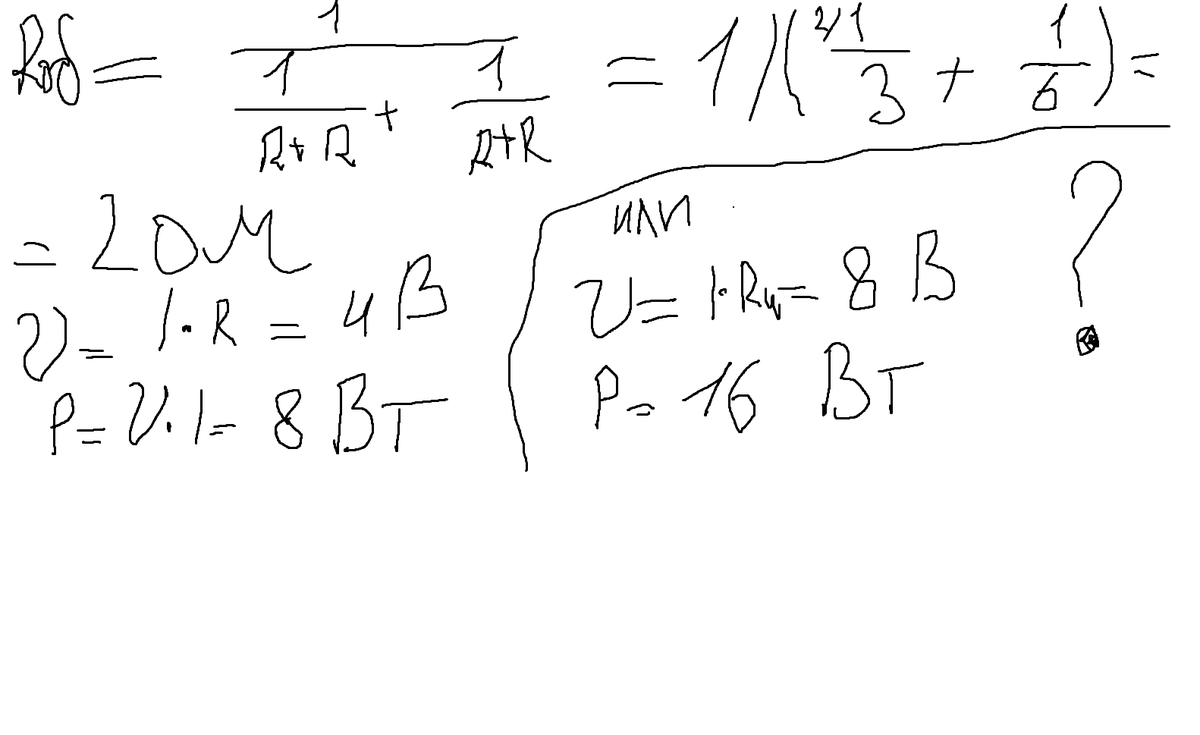 Rоб = 1 / (1/(R+R) + 1/(R+R)) = 1/(2/1/3 + 1/6) =
= 2 ОМ
U = I·R = 4 В
P = U·I = 8 ВТ
или
U = I·R4 = 8 В
P = 16 ВТ
?